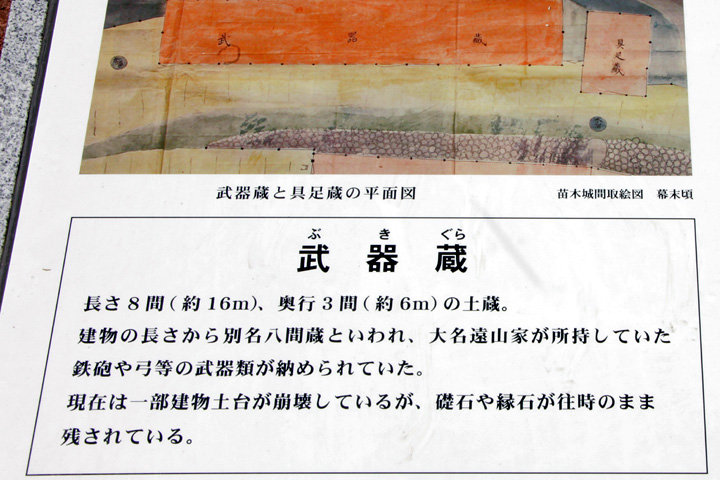 武器蔵
具足蔵
武器蔵と具足蔵の平面図
苗木城間取絵図 幕末頃
ぶ き ぐら
武器蔵
長さ8間(約16m)、奥行3間(約6m)の土蔵。
建物の長さから別名八間蔵といわれ、大名遠山家が所持していた
鉄砲や弓等の武器類が納められていた。
現在は一部建物土台が崩壊しているが、礎石や縁石が往時のまま
残されている。